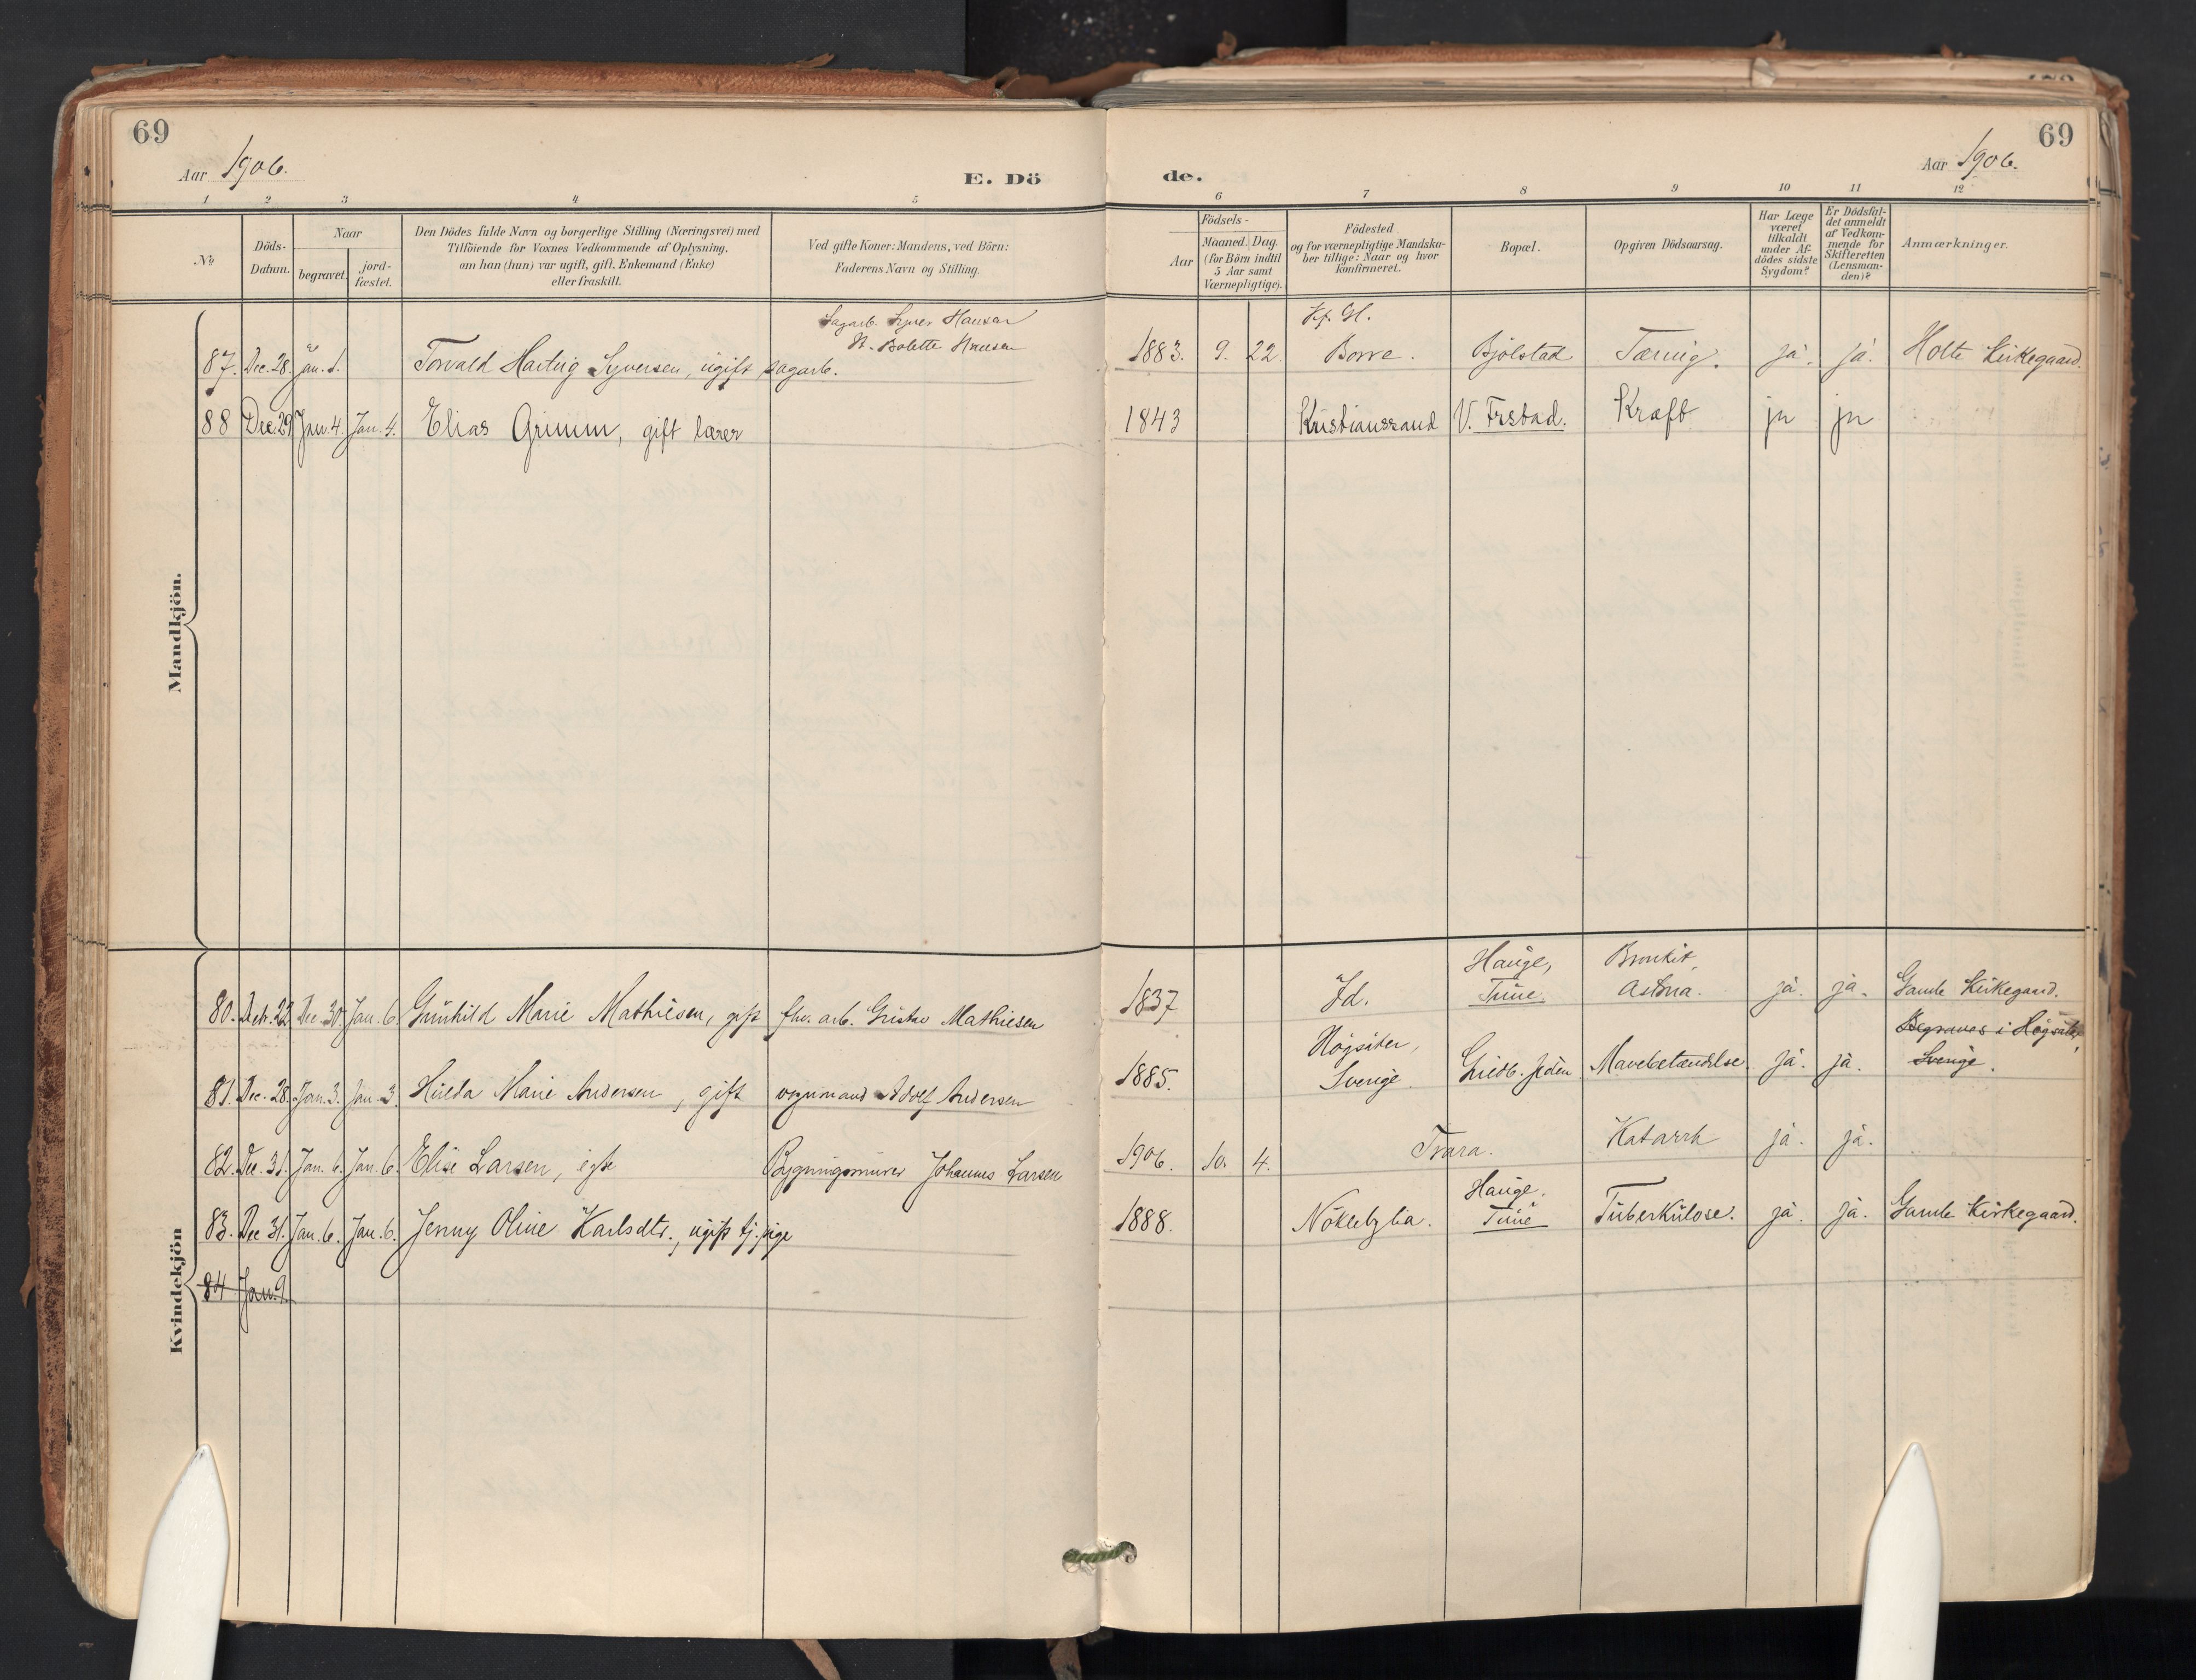 69
Aar 1906.
E. Dö
1 2 3 4 5
No
Döds-Datum.
Naar
begravet.
jord-fæstet.
Den Dödes fulde Navn og borgerlige Stilling (Næringsvei) med
Tilföiende for Voxnes Vedkommende af Oplysning,
om han (hun) var ugift, gift, Enkemand (Enke)
eller fraskilt.
Ved gifte Koner: Mandens, ved Börn:
Faderens Navn og Stilling.
Mandkjön.
Sagarb. Syver Hansen
H. Bolette Hansen
87. Dec. 28. Jan. 1. Torvald Hartvig Syversen, ugift sagarb.
88 Dec. 29 Jan. 4. Jan. 4. Elias Grimm, gift lærer
Kvindekjön
80. Dec. 22 Dec. 30. Jan. 6. Gunhild Marie Mathiesen, gift fhv. arb. Gustav Mathiesen
81. Dec. 28. Jan. 3. Jan. 3. Hulda Marie Andersen, gift vognmand Adolf Andersen
82. Dec. 31. Jan. 6. Jan. 6. Elise Larsen, egte Bygningsmurer Johannes Larsen
83. Dec 31. Jan. 6. Jan. 6. Jenny Oline Karlsdtr., ugift tj.pige
84 Jan. 9.
69
Aar 1906.
de.
6 7 8 9 10 11 12
Aar
Födsels-
Maaned. Dag.
(for Börn indtil
5 Aar samt
Værnepligtige).
Födested
og for værnepligtige Mandska-
ber tillige: Naar og hvor
konfirmeret.
Bopæl.
Opgiven Dödsaarsag.
Har Læge
været
tilkaldt
under Af-
dödes sidste
Sygdom?
Er Dödsfal-
det anmeldt
af Vedkom-
mende for
Skifteretten
(Lensman-
den)?
Anmærkninger.
1883. 9. 22. Borre. Bjölstad Tæring. ja. ja. Holte Kirkegaard.
1843 Kristianssand V. Frstad. Kræft ja ja
Hauge, Bronkit,
1837 Id. Tune. Astma. ja. ja. Gamle Kirkegaard.
Högsäter, Begraves i Högsäter
1885. Sverige. Mavebetændelse. ja. ja. Sverige.
1906. 10. 4. Trara. Katarrh ja. ja.
Hauge.
1888. Nöklebylia. Tune Tuberkulose. ja. ja. Gamle Kirkegaard.